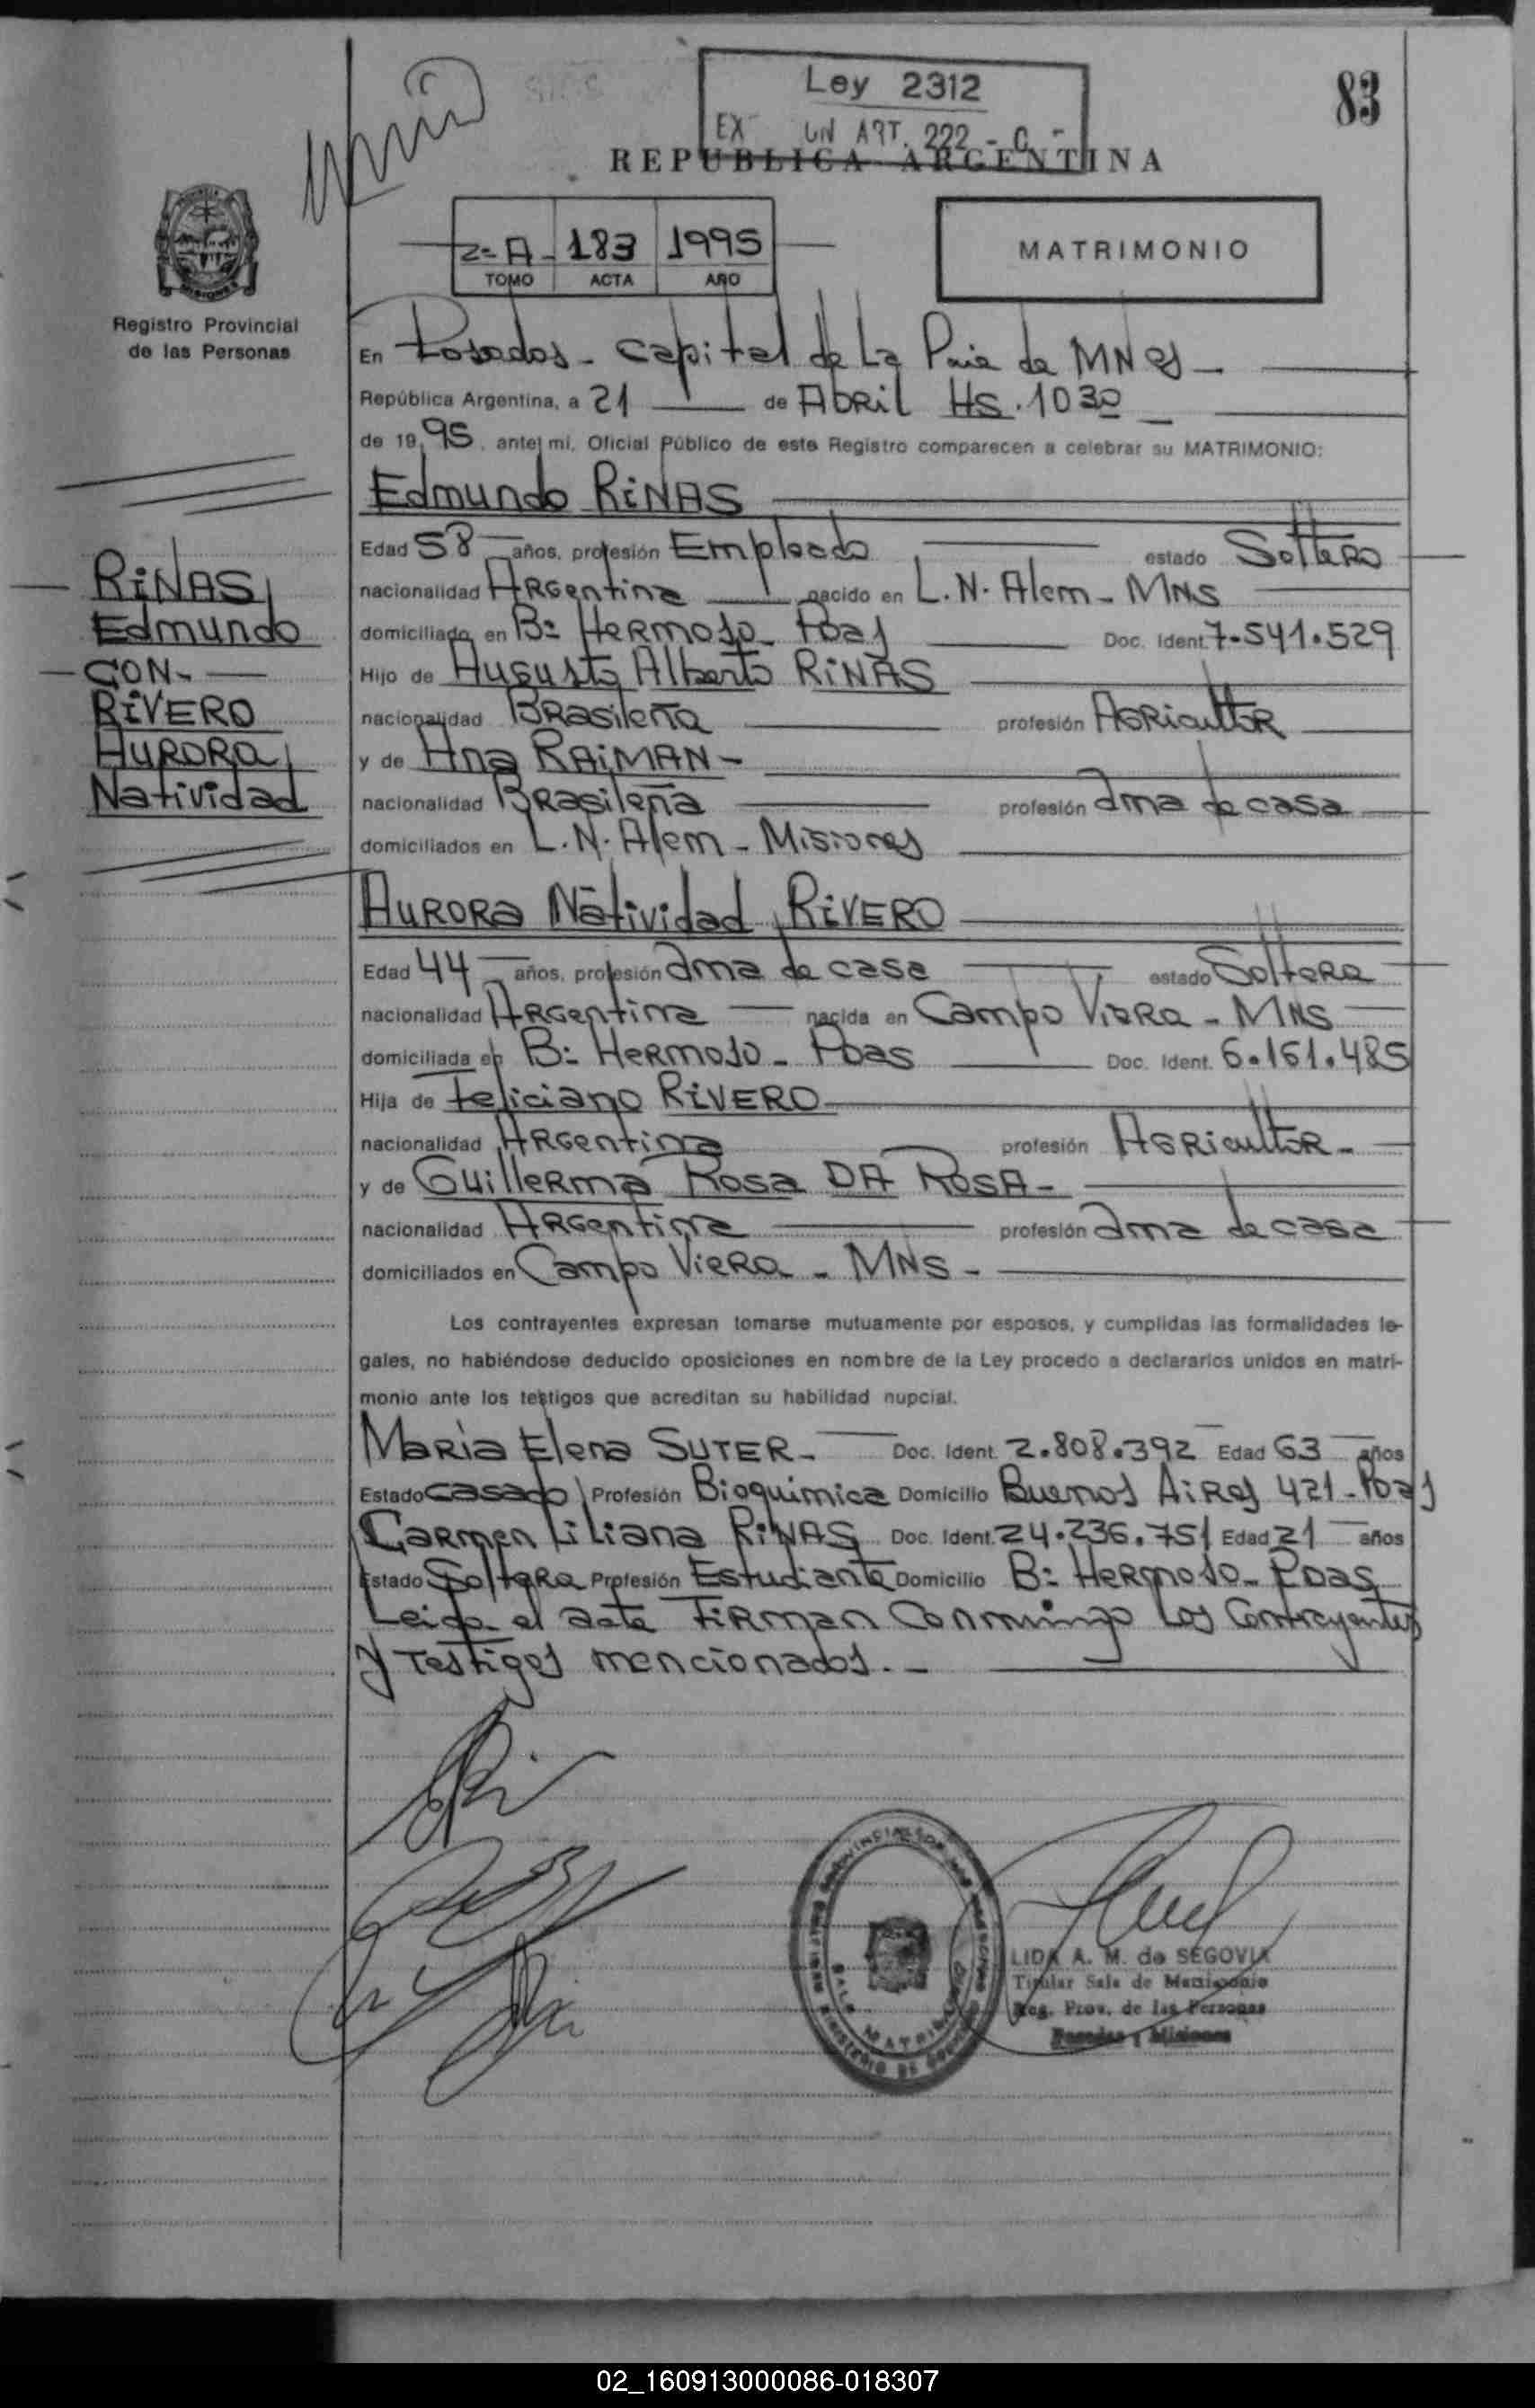 83
Ley 2312
EX UN ART. 222 - C -
REPUBLICA ARGENTINA
2= A - 183 1995
TOMO ACTA AÑO
MATRIMONIO
Registro Provincial
de las Personas
En Posadas - Capital de La Pcia de MNes -
República Argentina, a 21 de ABRil HS. 1030
de 1995, ante mi, Oficial Público de este Registro comparecen a celebrar su MATRIMONIO:
Edmundo RiNAS
Edad 58 años, profesión Empleado estado SolteRo
nacionalidad ARGentina nacido en L.N. Alem - MNS
domiciliado en B= HeRmoso - Pdas Doc. Ident 7.541.529
Hijo de Augusto Alberto RiNAS
nacionalidad BRasileña profesión AGRicultoR
y de Ana RAiMAN -
nacionalidad BRasileña profesión ama de casa
domiciliados en L.N. Alem - Misiones
RiNAS
Edmundo
- CON -
RiVERO
AURORA
Natividad
AURORA Natividad RiVERO
Edad 44 años, profesión ama de casa estado SolteRa
nacionalidad ARGentina nacida en Campo VieRa - MNS
domiciliada en B= HeRmoso - Pdas Doc. Ident. 6.161.485
Hija de Feliciano RiVERO
nacionalidad ARGentina profesión AGRicultoR -
y de GuilleRma Rosa DA RosA -
nacionalidad ARGentina profesión ama de casa
domiciliados en Campo VieRa - MNS -
Los contrayentes expresan tomarse mutuamente por esposos, y cumplidas las formalidades le-
gales, no habiéndose deducido oposiciones en nombre de la Ley procedo a declararlos unidos en matri-
monio ante los testigos que acreditan su habilidad nupcial.
MaRia Elena SUTER - Doc. Ident. 2.808.392 Edad 63 años
Estado casado Profesión Bioquimica Domicilio Buenos AiRes 421 - Pdas
CaRmen Liliana RiNAS Doc. Ident. 24.236.751 Edad 21 años
Estado SolteRa Profesión Estudiante Domicilio B= HeRmoso - Pdas
Leida el acta FiRman Conmingo Los Contrayentes
y Testigos mencionados. -
LIDA A. M. de SEGOVIA
Titular Sala de Matrimonio
Reg. Prov. de las Personas
Posadas - Misiones
02_160913000086-018307